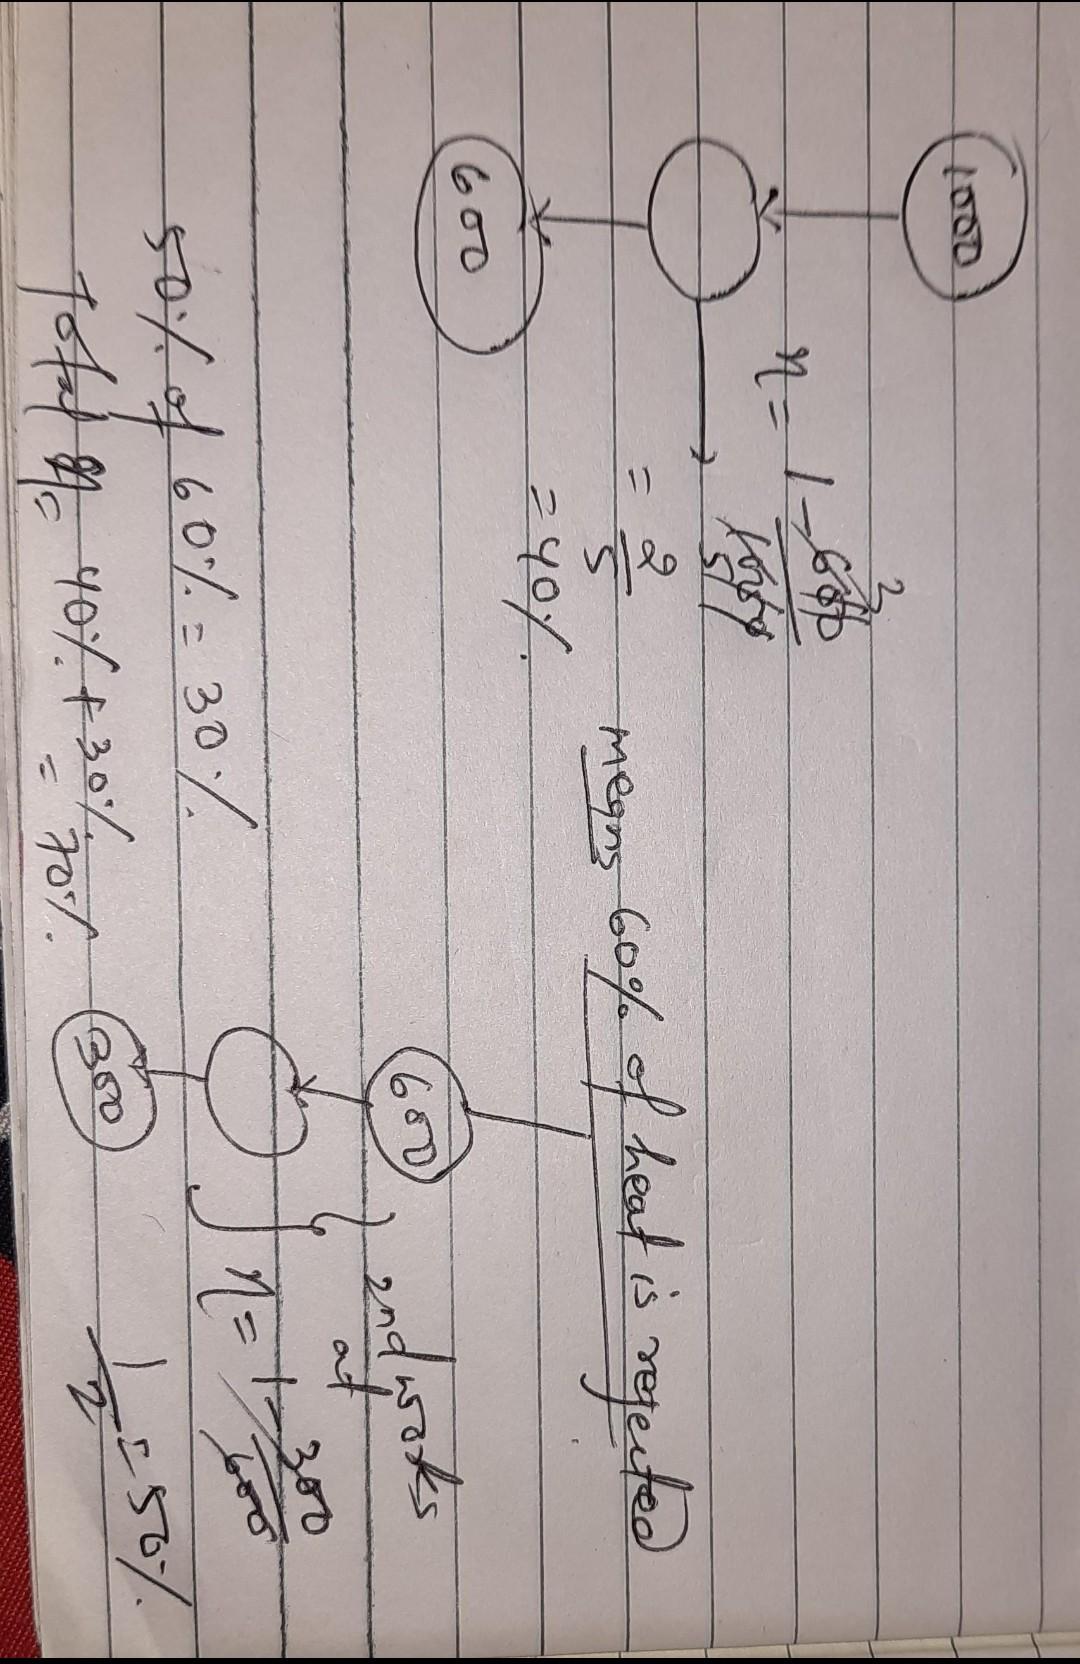 1000
η = 1 - 600/1000 3 5
= 2/5
= 40%
600
means 60% of heat is rejected
600
2nd works at
η = 1 - 300/600
1/2 = 50%
300
50% of 60% = 30%
Total η = 40% + 30%
= 70%